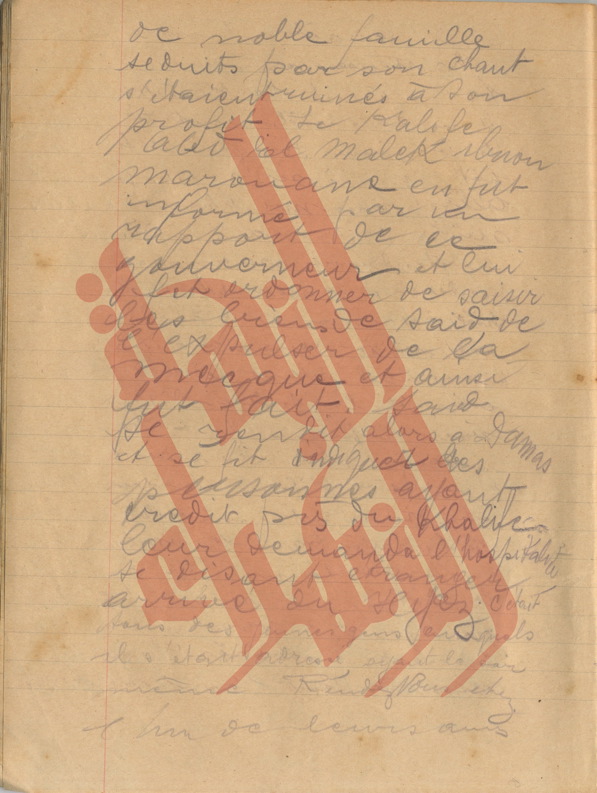 de noble famille
séduits par son chant
s'étaient ruinés à son
profit Le Kalife
Abd el Malek ibnou
marouane en fut
informé par un
rapport de ce
gouverneur et lui
fit ordonner de saisir
les biens de Said de
l'expulser de La
Mecque et ainsi
fut fait. Said
se rendit alors à Damas
et se fit indiquer les
personnes ayant
crédit près du Khalife
leur demanda l'hospitalité
se disant étranger
arrivé du Hejez. C'était
des auxquels
il s'était adressé ayant le soir
même Rendez Vous chez
l'un de leurs amis